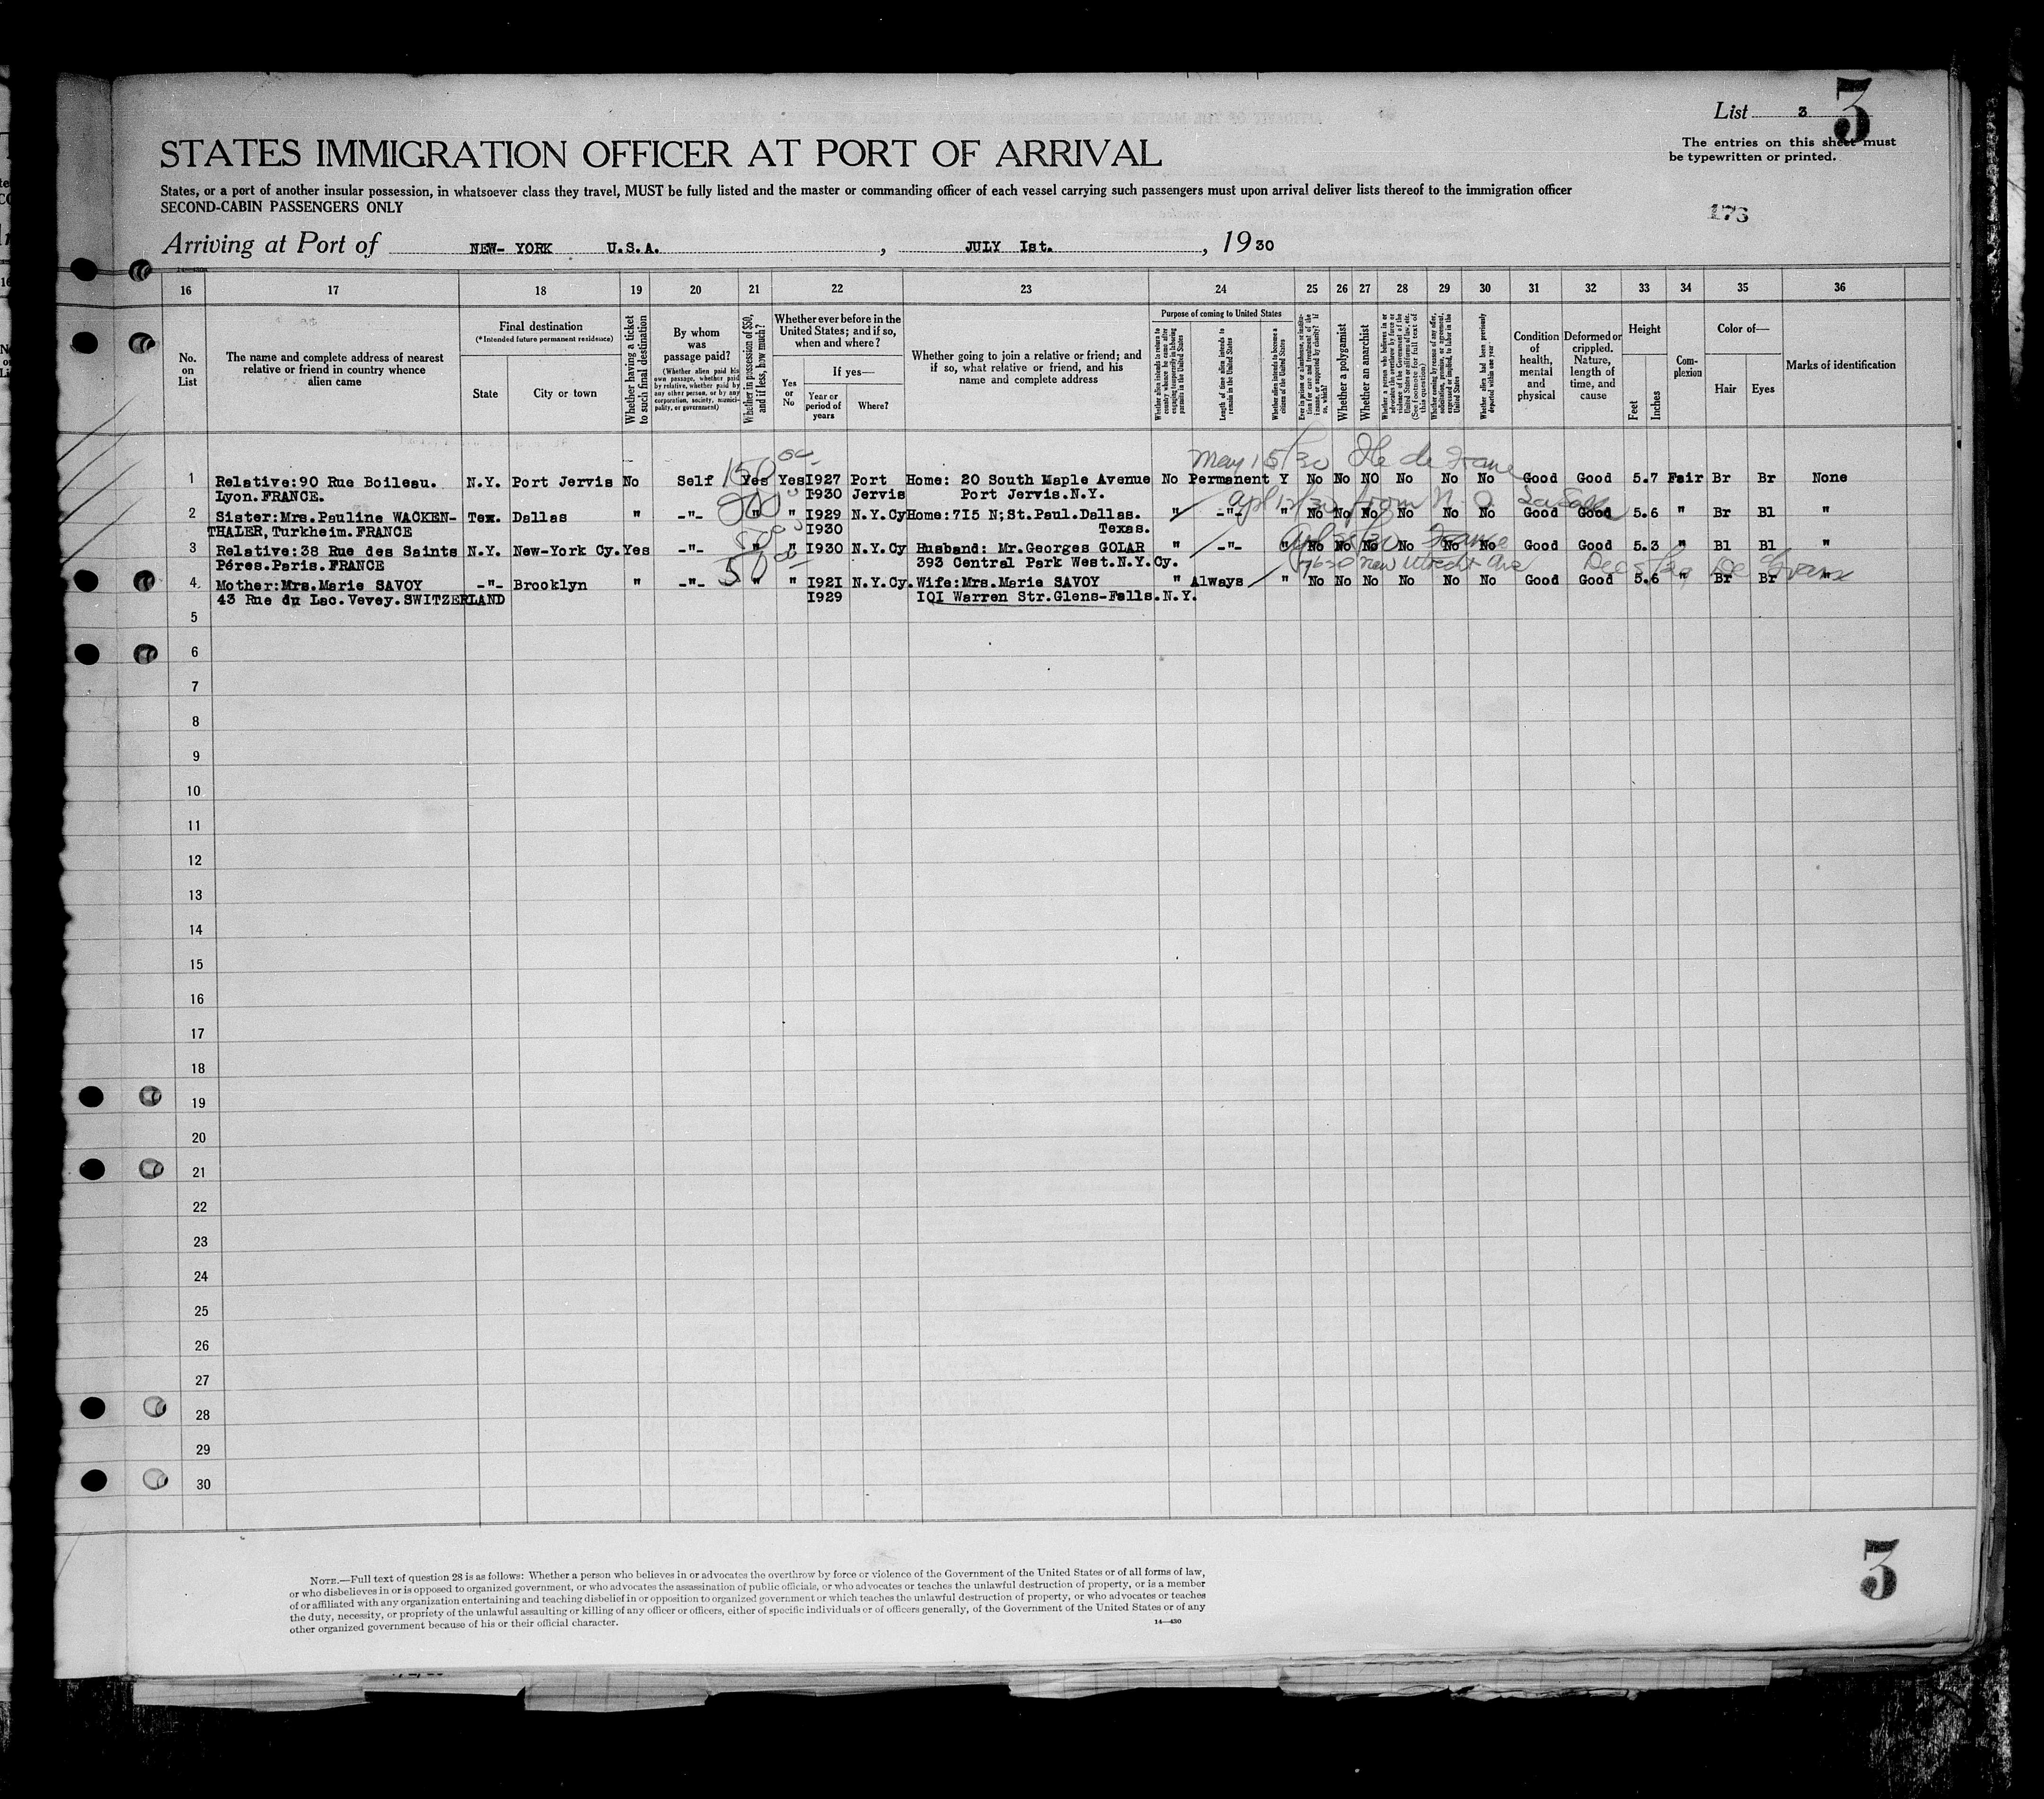 List 3
3
The entries on this sheet must
be typewritten or printed.
STATES IMMIGRATION OFFICER AT PORT OF ARRIVAL
States, or a port of another insular possession, in whatsoever class they travel, MUST be fully listed and the master or commanding officer of each vessel carrying such passengers must upon arrival deliver lists thereof to the immigration officer
SECOND-CABIN PASSENGERS ONLY
173
Arriving at Port of NEW- YORK U.S.A. , JULY Ist. , 1930
16 17 18 19 20 21 22 23 24 25 26 27 28 29 30 31 32 33 34 35 36
No. on List
The name and complete address of nearest relative or friend in country whence alien came
Final destination
(*Intended future permanent residence)
State
City or town
Whether having a ticket to such final destination
By whom was passage paid?
(Whether alien paid his own passage, whether paid by relative, whether paid by any other person, or by any corporation, society, municipality, or government)
Whether in possession of $50, and if less, how much?
Whether ever before in the United States; and if so, when and where?
Yes or No
If yes—
Year or period of years
Where?
Whether going to join a relative or friend; and if so, what relative or friend, and his name and complete address
Purpose of coming to United States
Whether alien intends to return to country whence he came after engaging temporarily in laboring pursuits in the United States
Length of time alien intends to remain in the United States
Whether alien intends to become a citizen of the United States
Ever in prison or almshouse, or institution for care and treatment of the insane, or supported by charity? If so, which?
Whether a polygamist
Whether an anarchist
Whether a person who believes in or advocates the overthrow by force or violence of the Government of the United States or all forms of law, etc. (See footnote for full text of this question)
Whether coming by reason of any offer, solicitation, promise, or agreement, expressed or implied, to labor in the United States
Whether alien had been previously deported within one year
Condition of health, mental and physical
Deformed or crippled. Nature, length of time, and cause
Height
Feet
Inches
Complexion
Color of—
Hair
Eyes
Marks of identification
150 00 May 15/30 Ile de France
1 Relative:90 Rue Boileau. N.Y. Port Jervis No Self Yes Yes I927 Port Home: 20 South Maple Avenue No Permanent Y No No NO No No No Good Good 5.7 Fair Br Br None
Lyon.FRANCE. I930 Jervis Port Jervis.N.Y.
2 Sister:Mrs.Pauline WACKEN- Tex. Dallas " -"- " " I929 N.Y.Cy Home:7I5 N;St.Paul.Dallas. " -"- " No No No No No No Good Good 5.6 " Br Bl "
THALER,Turkheim.FRANCE I930 Texas.
3 Relative:38 Rue des Saints N.Y. New-York Cy. Yes -"- " " I930 N.Y.Cy Husband: Mr.Georges GOLAR " -"- " No No No No No No Good Good 5.3 " Bl Bl "
Péres.Paris.FRANCE 393 Central Park West.N.Y.Cy.
7620 New Utrecht Ave
4 Mother:Mrs.Marie SAVOY -"- Brooklyn " -"- " " I92I N.Y.Cy. Wife:Mrs.Marie SAVOY " Always " No No No No No No Good Good 5.6 " Br Br "
43 Rue du Lac.Vevey.SWITZERLAND I929 IOI Warren Str.Glens-Falls.N.Y.
5
6
7
8
9
10
11
12
13
14
15
16
17
18
19
20
21
22
23
24
25
26
27
28
29
30
NOTE.—Full text of question 28 is as follows: Whether a person who believes in or advocates the overthrow by force or violence of the Government of the United States or of all forms of law,
or who disbelieves in or is opposed to organized government, or who advocates the assassination of public officials, or who advocates or teaches the unlawful destruction of property, or is a member
of or affiliated with any organization entertaining and teaching disbelief in or opposition to organized government or which teaches the unlawful destruction of property, or who advocates or teaches
the duty, necessity, or propriety of the unlawful assaulting or killing of any officer or officers, either of specific individuals or of officers generally, of the Government of the United States or of any
other organized government because of his or their official character.
14—430
3